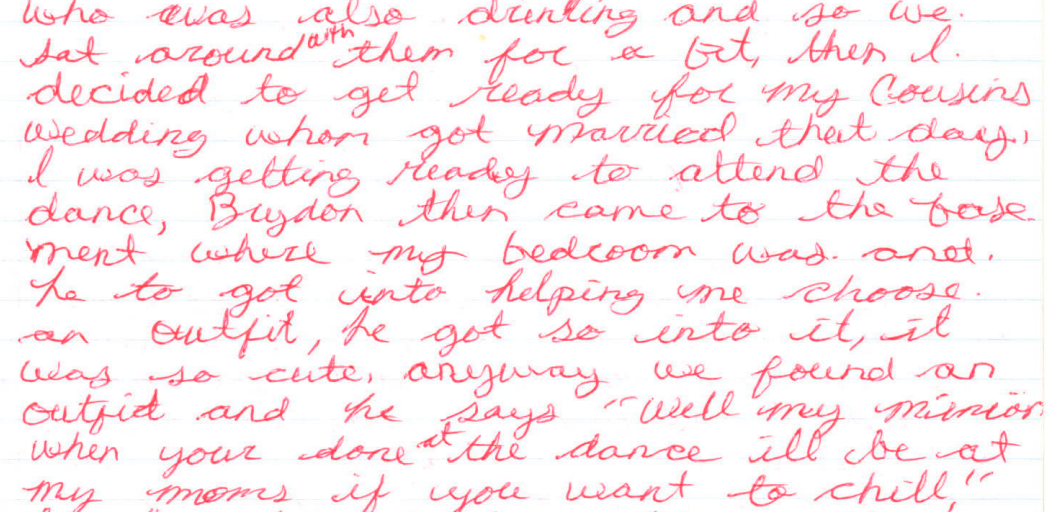 who was also drinking and so we.
sat around with them for a bit, then I.
decided to get ready for my Cousins
wedding whom got married that day,
I was getting ready to attend the
dance, Brydon then came to the base
ment where my bedroom was. and.
he to got into helping me choose.
an outfit, he got so into it, it
was so cute, anyway we found an
outfit and he says "well my minion
when your done at the dance ill be at
my moms if you want to chill,"